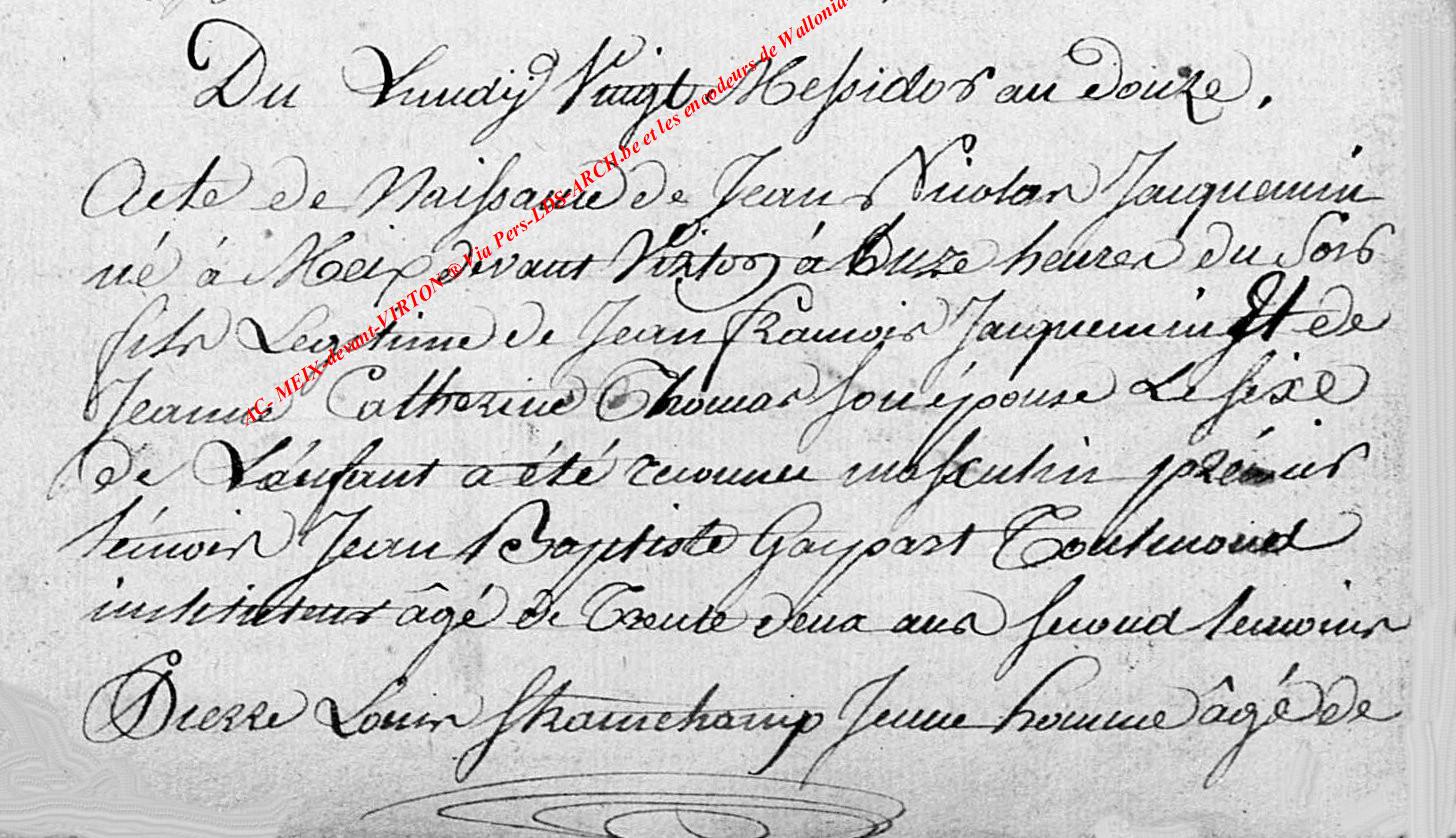 Du Lundy Vingt Messidor an douze,
Acte de Naissance de Jean Nicolas Jacquemin
né à Meix devant Virton à Onze heures du Soir
fils Legitime de Jean françois Jacquemin Et de
Jeanne Catherine Thomas son épouse Le sexe
de L'enfant a été reconnu masculin prémier
témoin Jean Baptiste Gaspart Toutmond
instituteur âgé de Trente deux ans second temoins
Pierre Louis franchamp Jeune homme âgé de
AC- MEIX-devant-VIRTON ® Via Pers-LDS-ARCH.be et les encodeurs de Wallonia-